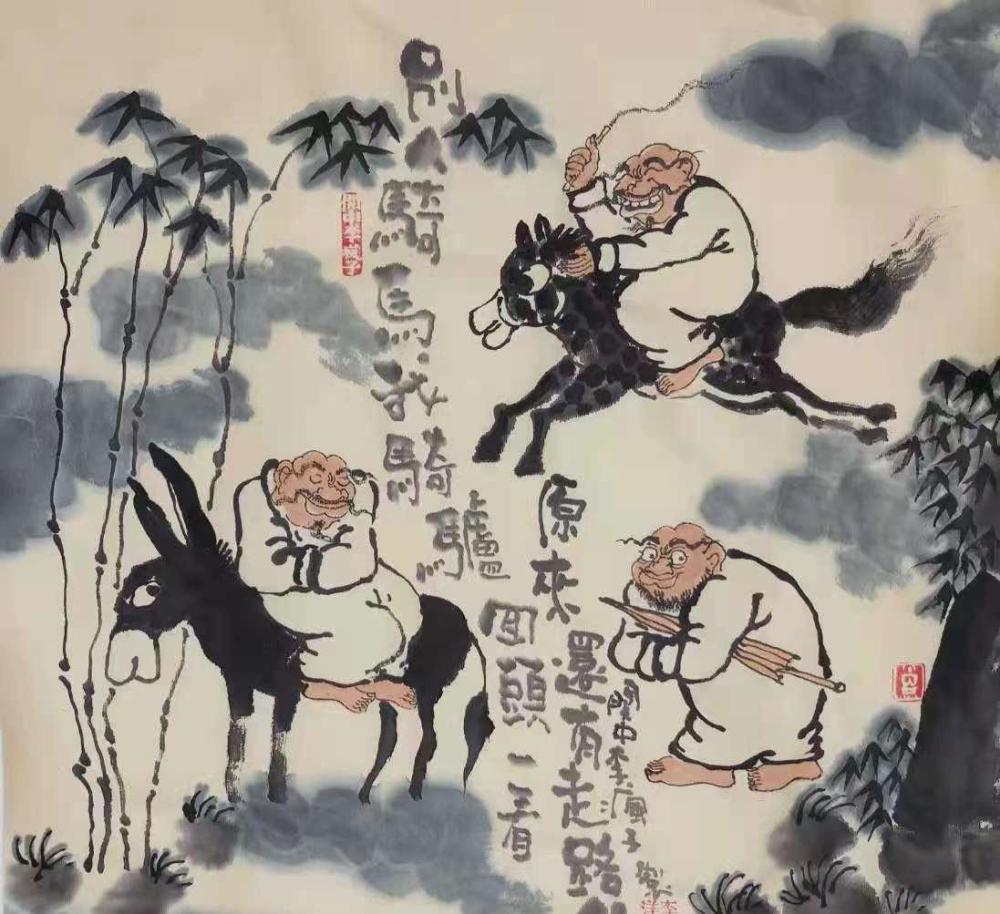 別人騎馬我騎驢
回頭一看
原來
還有走路
関中李瘋子